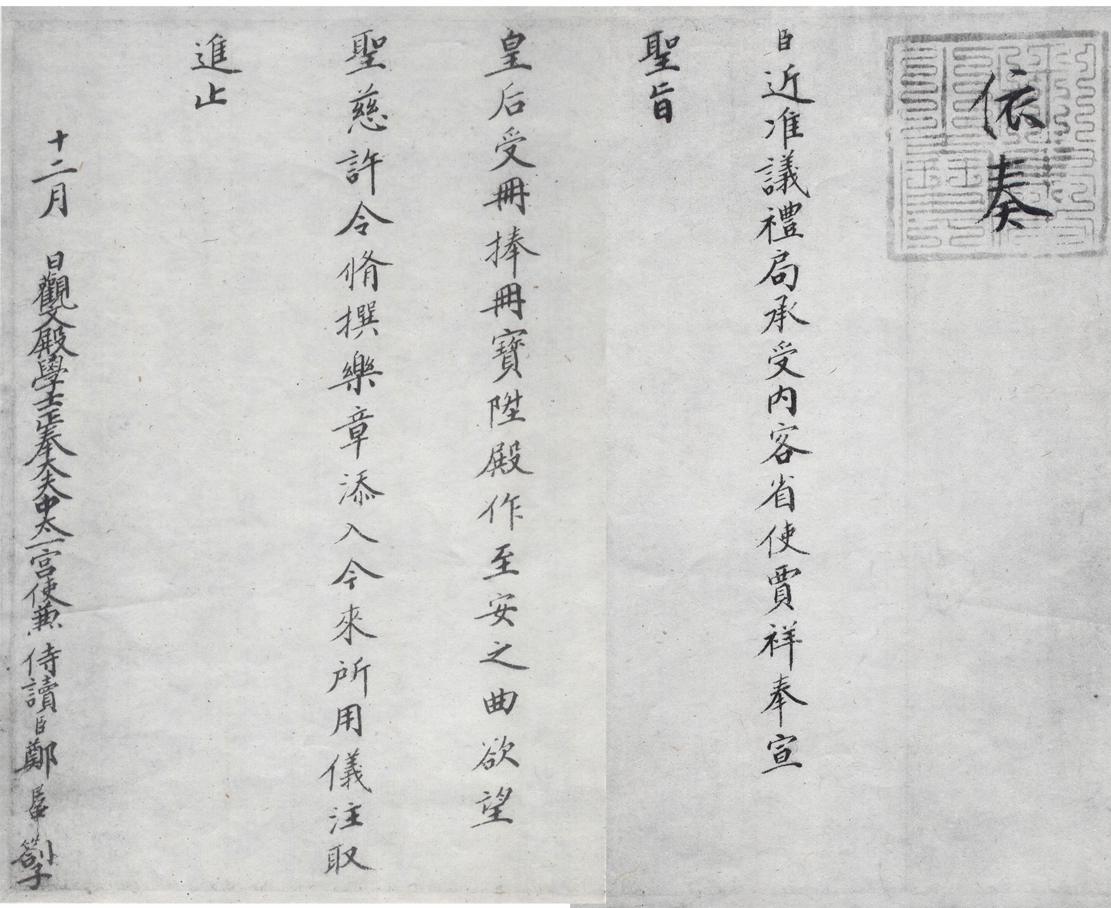 依奏
臣近准議禮局承受内客省使賈祥奉宣
聖旨
皇后受冊捧冊寶陞殿作至安之曲欲望
聖慈許令脩撰樂章添入今來所用儀注取
進止
十二月 日觀文殿學士正奉大夫中太一宮使兼侍讀臣鄭居中劄子